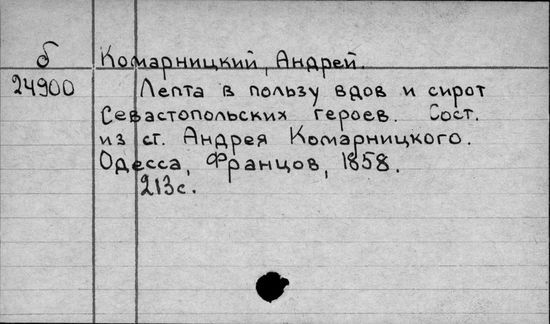 б Комарницкий, Андрей.
24900 Лепта в пользу вдов и сирот
Севастопольских героев. Сост.
из ст. Андрея Комарницкого.
Одесса, Францов, 1858.
213с.